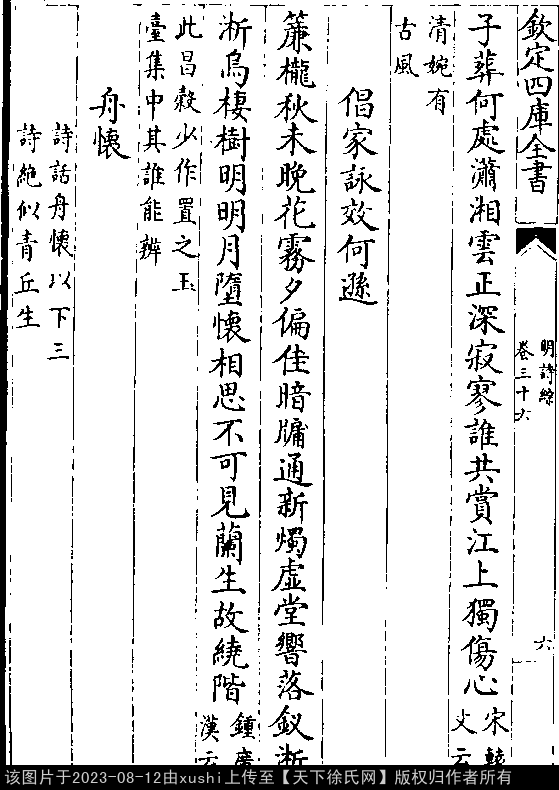 欽定四庫全書
明詩綜
卷三十六
六
子葬何處瀟湘雲正深寂寥誰共賞江上獨傷心宋轅文云
清婉有
古風
倡家詠效何遜
簾櫳秋未晚花霧夕偏佳暗牖通新燭虛堂響落釵淅
淅烏棲樹明明月墮懷相思不可見蘭生故繞階鍾廣漢云
此昌糓少作置之玉
臺集中其誰能辨
舟懷
詩話舟懷以下三
詩絶似青丘生
该图片于2023-08-12由xushi上传至【天下徐氏网】版权归作者所有